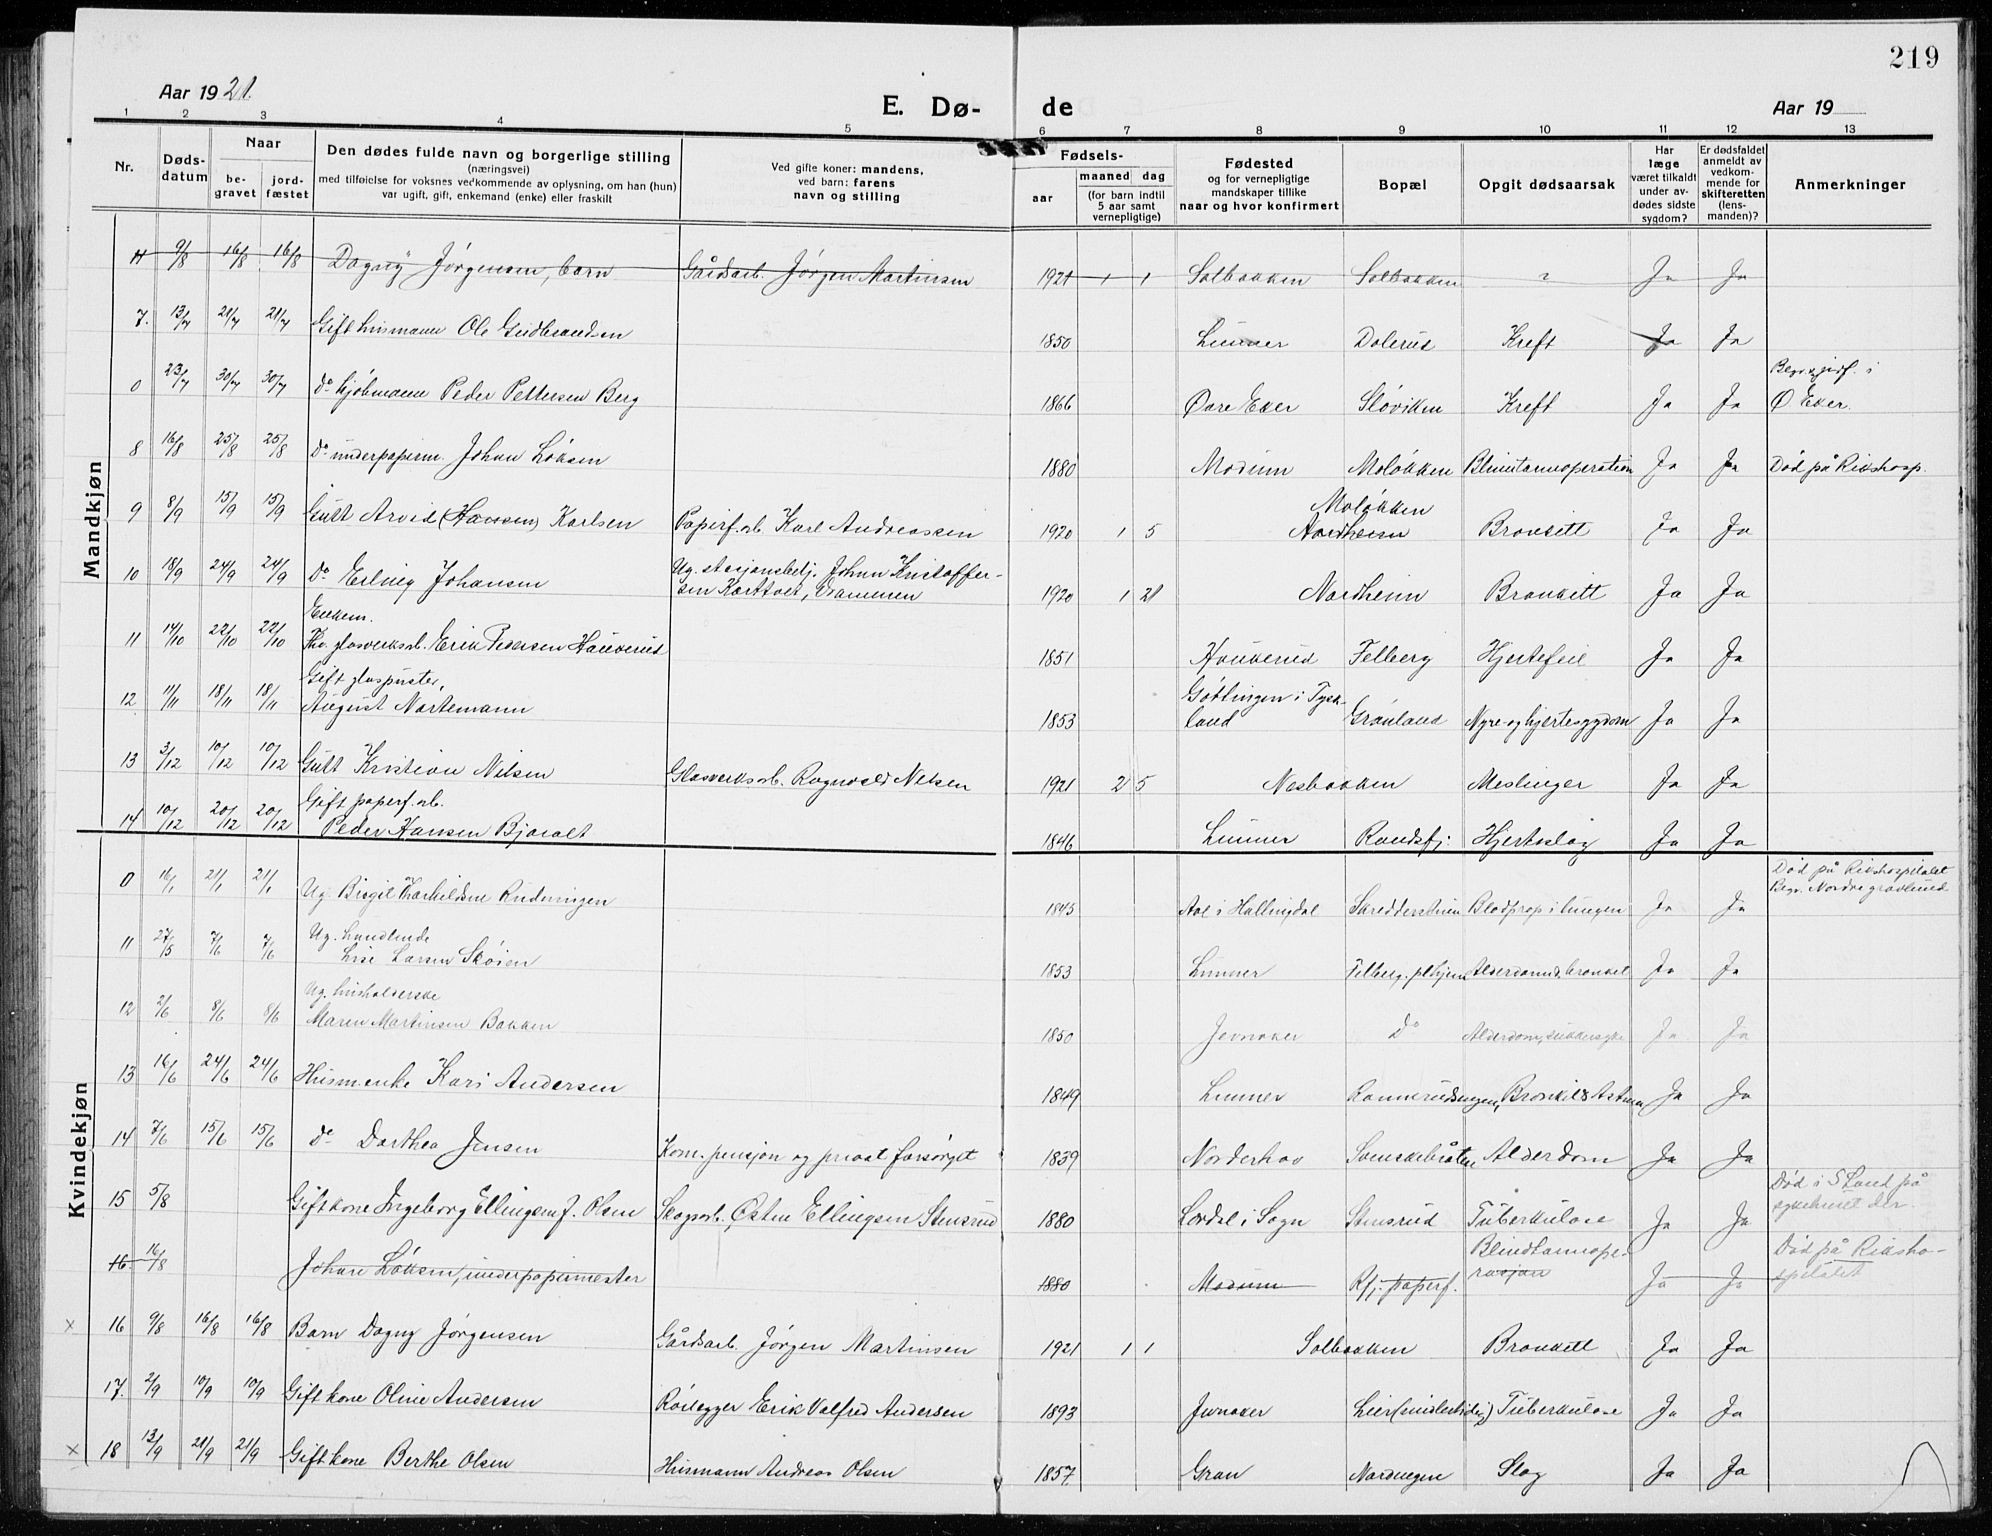 219
Aar 1921.
E. Dø- de
Aar 19
1 2 3 4 5 6 7 8 9 10 11 12 13
Nr.
Døds-
datum
Naar
be-
gravet
jord-
fæstet
Den dødes fulde navn og borgerlige stilling
(næringsvei)
med tilføielse for voksnes vedkommende av oplysning, om han (hun)
var ugift, gift, enkemand (enke) eller fraskilt
Ved gifte koner: mandens,
ved barn: farens
navn og stilling
Fødsels-
aar
maaned dag
(for barn indtil
5 aar samt
vernepligtige)
Fødested
og for vernepligtige
mandskaper tillike
naar og hvor konfirmert
Bopæl
Opgit dødsaarsak
Har
læge
været tilkaldt
under av-
dødes sidste
sygdom?
Er dødsfaldet
anmeldt av
vedkom-
mende for
skifteretten
(lens-
manden)?
Anmerkninger
Mandkjøn
11 9/8 16/8 16/8 Dagny Jørgensen, barn Gårdsarb. Jørgen Martinsen 1921 1 1 Solbakken Solbakken ? Ja Ja
7. 13/7 21/7 21/7 Gift husmann Ole Gudbrandsen 1850 Lunner Dolerud Kreft Ja Ja
0 23/7 30/7 30/7 Do kjøbmann Peder Pettersen Berg 1866 Øvre Eker Sløviken Kreft Ja Ja Begr. jordf. i
Ø Eker.
8 16/8 25/8 25/8 Do underpapirm. Johan Løksen 1880 Modum Moløkken Blindtarmoperation Ja Ja Død på Rikshosp.
9 8/9 15/9 15/9 Gutt Arvid (Hansen) Karlsen Papirf.arb. Karl Andreassen 1920 1 5 Moløkken
Nordheim Bronkitt Ja Ja
10 18/9 24/9 24/9 Do Erling Johansen Ug. stasjonsbetj. Johan Kristoffer-
sen Korttvet, Drammen 1920 1 21 Nordheim Bronkitt Ja Ja
Enkem.
11 14/10 22/10 22/10 Fhv. glasverksarb. Erik Pedersen Haukerud 1851 Haukerud Felberg Hjertefeil Ja Ja
Gift glaspuster,
12 11/11 18/11 18/11 August Nortemann 1853 Göttingen i Tysk-
land Grønland Nyre- og hjertesygdom Ja Ja
13 3/12 10/12 10/12 Gutt Kristian Nilsen Glasverksarb. Ragnvald Nilsen 1921 2 5 Nesbakken Meslinger Ja Ja
Gift papirf.arb.
14 10/12 20/12 20/12 Peder Hansen Bjoralt 1846 Lunner Randsfj. Hjerteslag Ja Ja
Kvindekjøn
0 16/1 21/1 21/1 Ug. Birgit Torkildsen Rudningen 1845 Aal i Hallingdal Skredderstuen Blodprop i lungen Ja Ja Død på Rikshospitalet
Begr. Nordre gravlund
Ug. handlende
11 27/5 7/6 7/6 Lise Larsen Skøien 1853 Lunner Felberg, plhjem Alderdom & bronkit Ja Ja
Ug. husholderske
12 2/6 8/6 8/6 Maren Martinsen Bakken 1850 Jevnaker Do Alderdom, sukkersyke Ja Ja
13 16/6 24/6 24/6 Husm.enke Kari Andersen 1849 Lunner Rannerudengen, Bronkit & Astma Ja Ja
14 7/6 15/6 15/6 Do Dorthea Jensen Kom. pensjon og privat forsørget 1839 Norderhov Svenskebråten Alderdom Ja Ja
15 5/8 Gift kone Ingeborg Ellingsen f. Olsen Skogsarb. Østen Ellingsen Stensrud 1880 Lærdal i Sogn Stensrud Tuberkulose Ja Ja Død i S Land på
sykehuset der.
16 16/8 Johan Løksen, underpapirmester 1880 Modum Rfj. papirf. Blindtarmope-
rasjon Ja Ja Død på Riksho-
spitalet
x 16 9/8 16/8 16/8 Barn Dagny Jørgensen Gårdsarb. Jørgen Martinsen 1921 1 1 Solbakken Bronkitt Ja Ja
17. 2/9 10/9 10/9 Gift kone Oline Andersen Rørlegger Erik Valfred Andersen 1893 Jevnaker Lier (midlertidig) Tuberkulose Ja Ja
x 18 13/9 21/9 21/9 Gift kone Berthe Olsen Husmann Andreas Olsen 1857 Gran Nordengen Slag Ja Ja